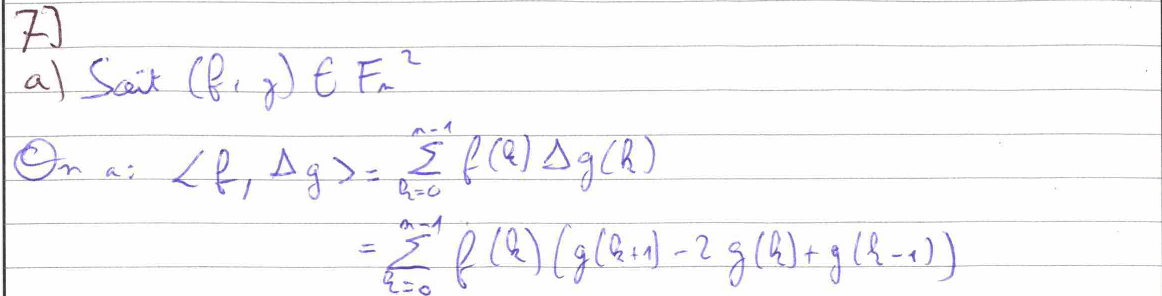 7)
a) Soit (f, g) ∈ Fₙ²
On a : <f, Δg> = ∑_{k=0}^{n-1} f(k) Δg(k)
= ∑_{k=0}^{n-1} f(k) (g(k+1) - 2 g(k) + g(k-1))